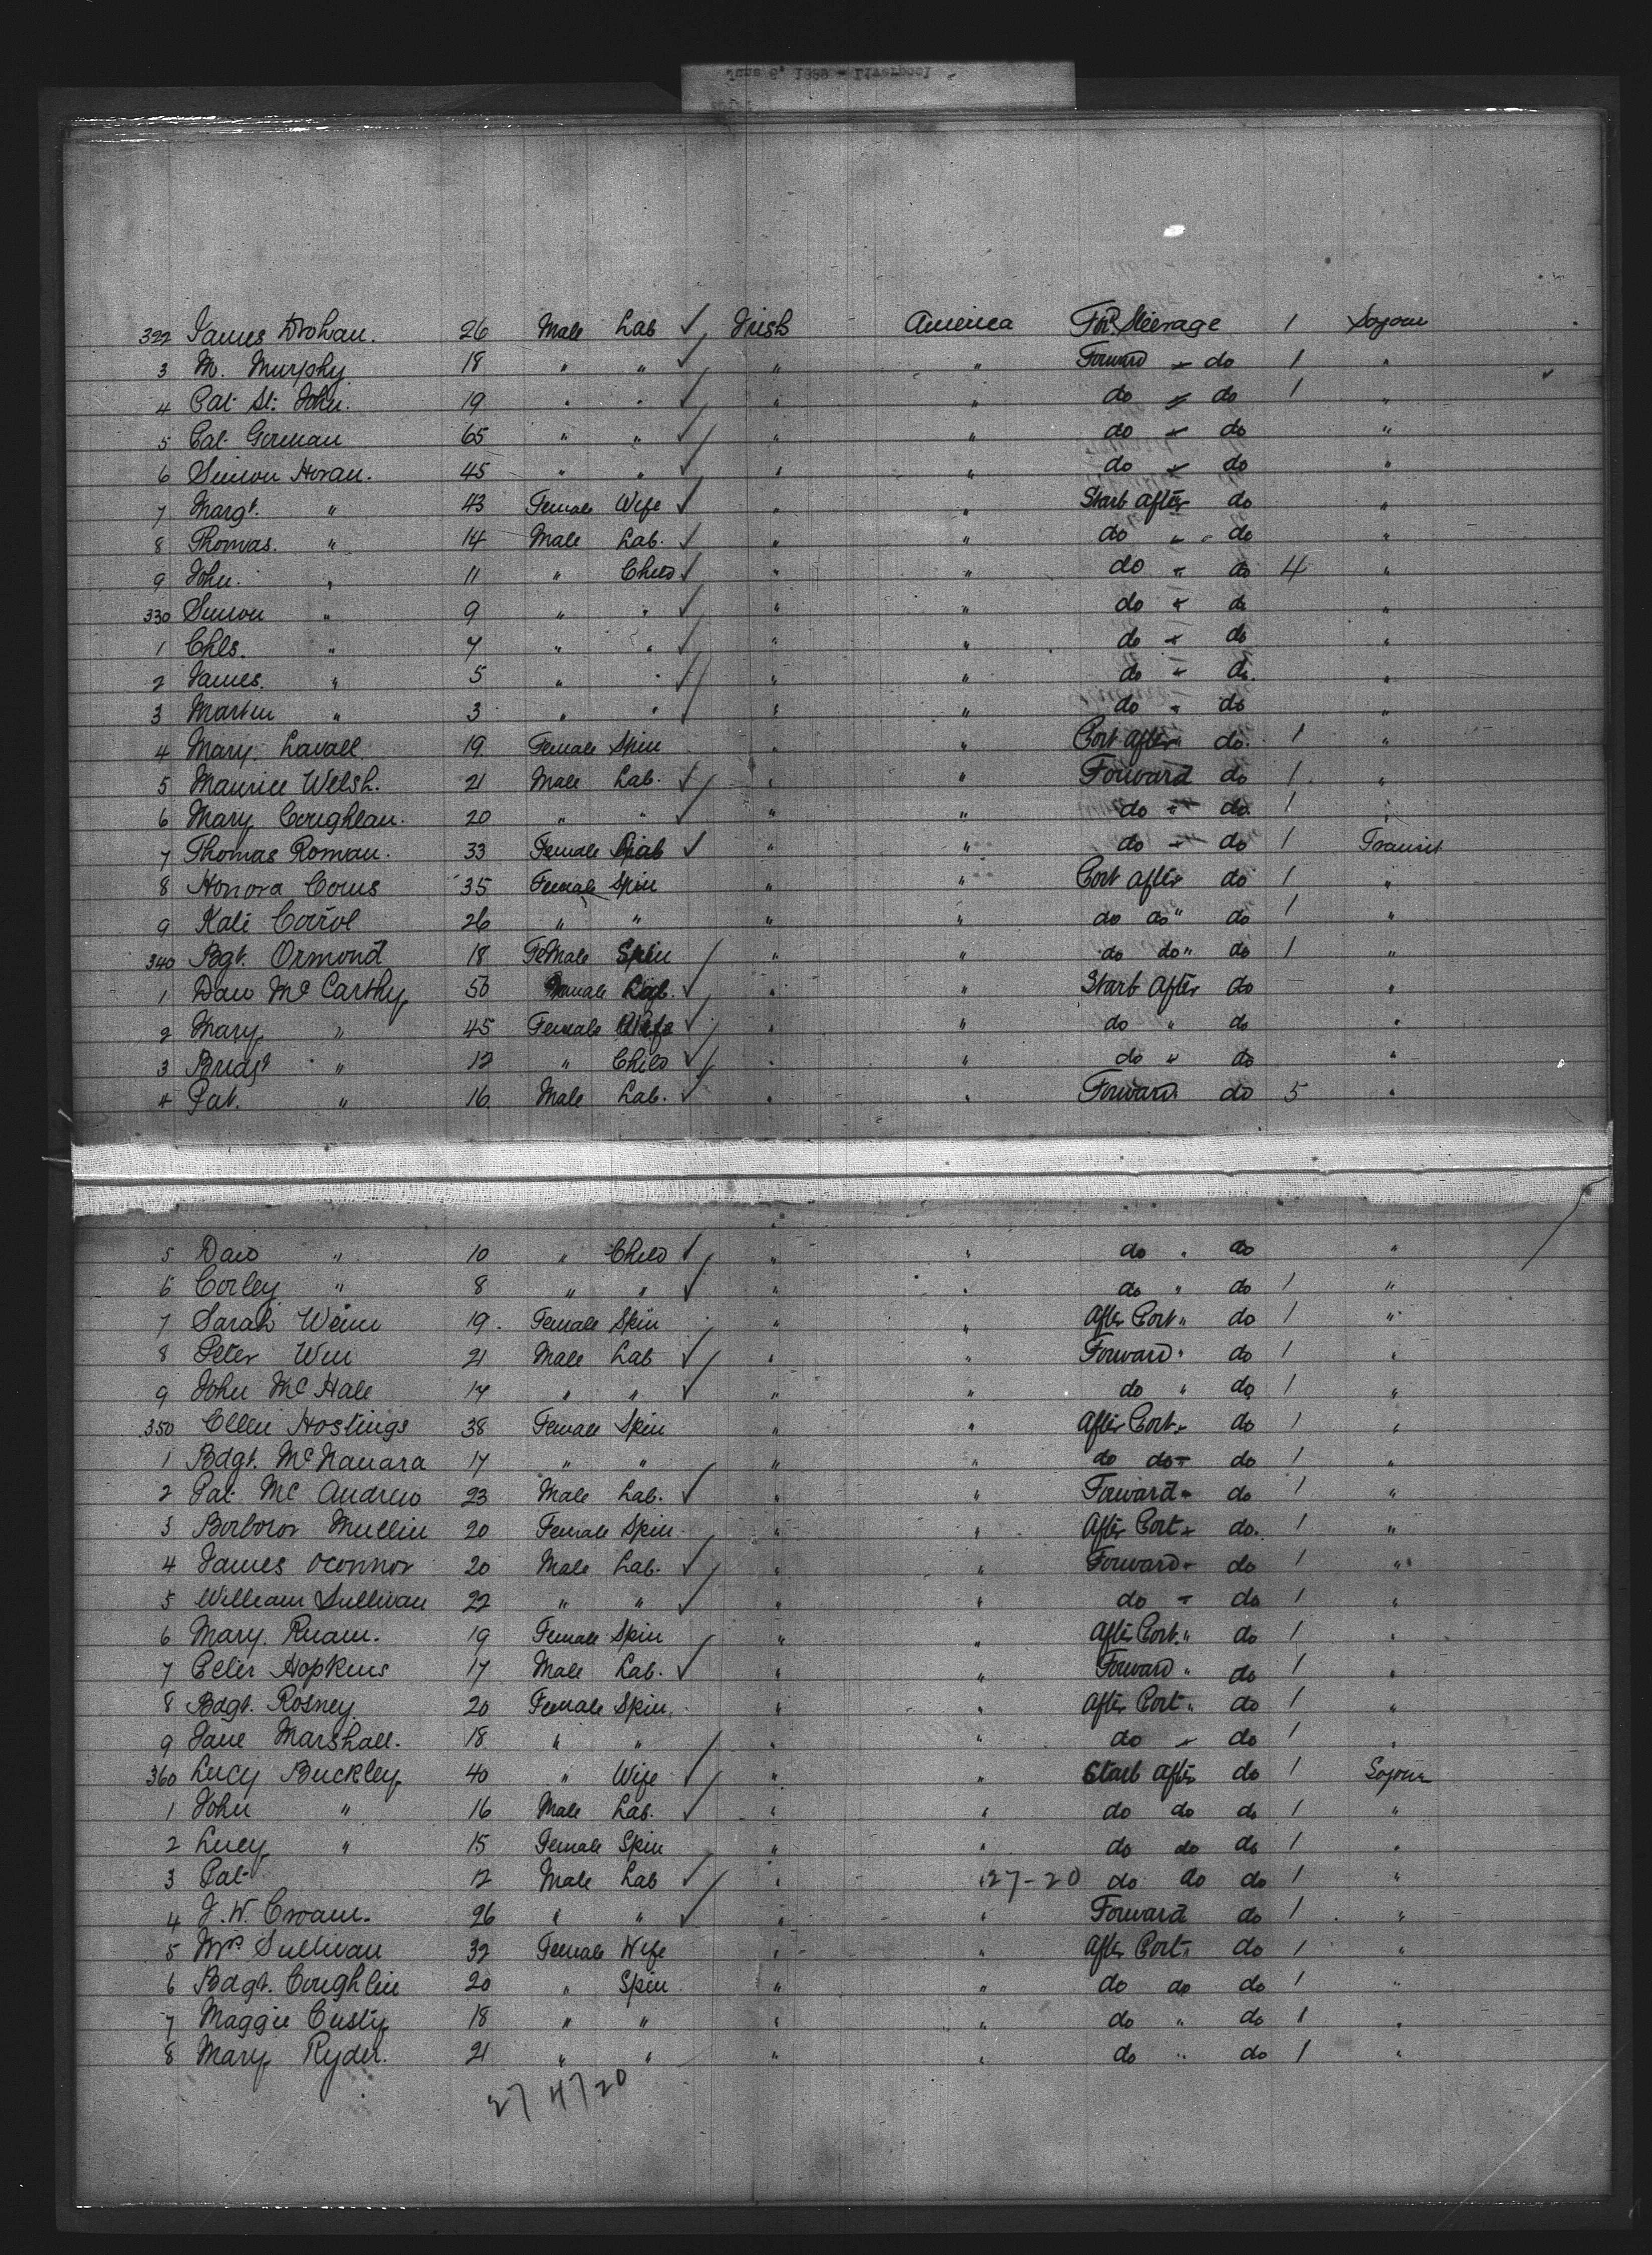 322 James Drohan. 26 Male Lab ✓ Irish America For'd Steerage 1 Sojour
3 M. Murphy 18 " " ✓ " " Forward " do 1 "
4 Pat St. John. 19 " " ✓ " " do " do 1 "
5 Pat Gorman 65 " " ✓ " " do " do "
6 Simon Horan. 45 " " ✓ " " do " do "
7 Margt. " 43 Female Wife ✓ " " Starb after do "
8 Thomas. " 14 Male Lab. ✓ " " do " do "
9 John. " 11 " Child ✓ " " do " do 4 "
330 Simon " 9 " " ✓ " " do " do "
1 Chls. " 7 " " ✓ " " do " do "
2 James. " 5 " " ✓ " " do " do. "
3 Martin " 3 " " ✓ " " do " do "
4 Mary. Lavall 19 Female Spin " " Port after do. 1 "
5 Maurice Welsh. 21 Male Lab. ✓ " " Forward do 1 "
6 Mary Coughlan. 20 " " ✓ " " do " do. 1 "
7 Thomas Roman. 33 Female Lab ✓ " " do " do 1 Transit
8 Honora Corus 35 Female Spin " " Port after do 1 "
9 Kate Carrol 26 " " " " do do " do 1 "
340 Bgt. Ormond 18 Female Spin " " do do " do 1 "
1 Dav Mc Carthy 50 Male Lab. ✓ " " Starb After do "
2 Mary " 45 Female Wife ✓ " " do " do "
3 Bridgt " 12 " Child ✓ " " do " do "
4 Pat. " 16 Male Lab. ✓ " " Forward do 5 "
5 Davo " 10 " Child ✓ " " do " do "
6 Corley " 8 " " ✓ " " do " do 1 "
7 Sarah Weim 19. Female Spin " " After Port " do 1 "
8 Peter Win 21 Male Lab ✓ " " Forward " do 1 "
9 John Mc Hale 17 " " ✓ " " do " do 1 "
350 Ellen Hostings 38 Female Spin " " After Port " do 1 "
1 Bdgt. McNamara 17 " " " " do do " do 1 "
2 Pat Mc Andrew 23 Male Lab. ✓ " " Forward " do 1 "
3 Borboror Mullin 20 Female Spin " " After Port " do. 1 "
4 James Oconnor 20 Male Lab. ✓ " " Forward " do 1 "
5 William Sullivan 22 " " ✓ " " do " do 1 "
6 Mary. Ruam. 19 Female Spin " " After Port. " do 1 "
7 Peter Hopkins 17 Male Lab. ✓ " " Forward " do 1 "
8 Bdgt. Rosney 20 Female Spin. " " After Port " do 1 "
9 Jane Marshall. 18 " " " " do " do 1 "
360 Lucy Buckley 40 " Wife ✓ " " Starb after do 1 Sojour
1 John " 16 Male Lab. ✓ " " do do do 1 "
2 Lucy " 15 Female Spin " " do do do 1 "
3 Pat 12 Male Lab ✓ " " 27-20 do do do 1 "
4 J. W. Croam. 26 " " ✓ " " Forward do 1 "
5 Mrs Sullivan 32 Female Wife " " After Port " do 1 "
6 Bdgt. Coughlin 20 " Spin " " do do do 1 "
7 Maggie Custy 18 " " " " do " do 1 "
8 Mary Ryder. 21 " " " " do " do 1 "
27 4720
June 6, 1889 - Liverpool